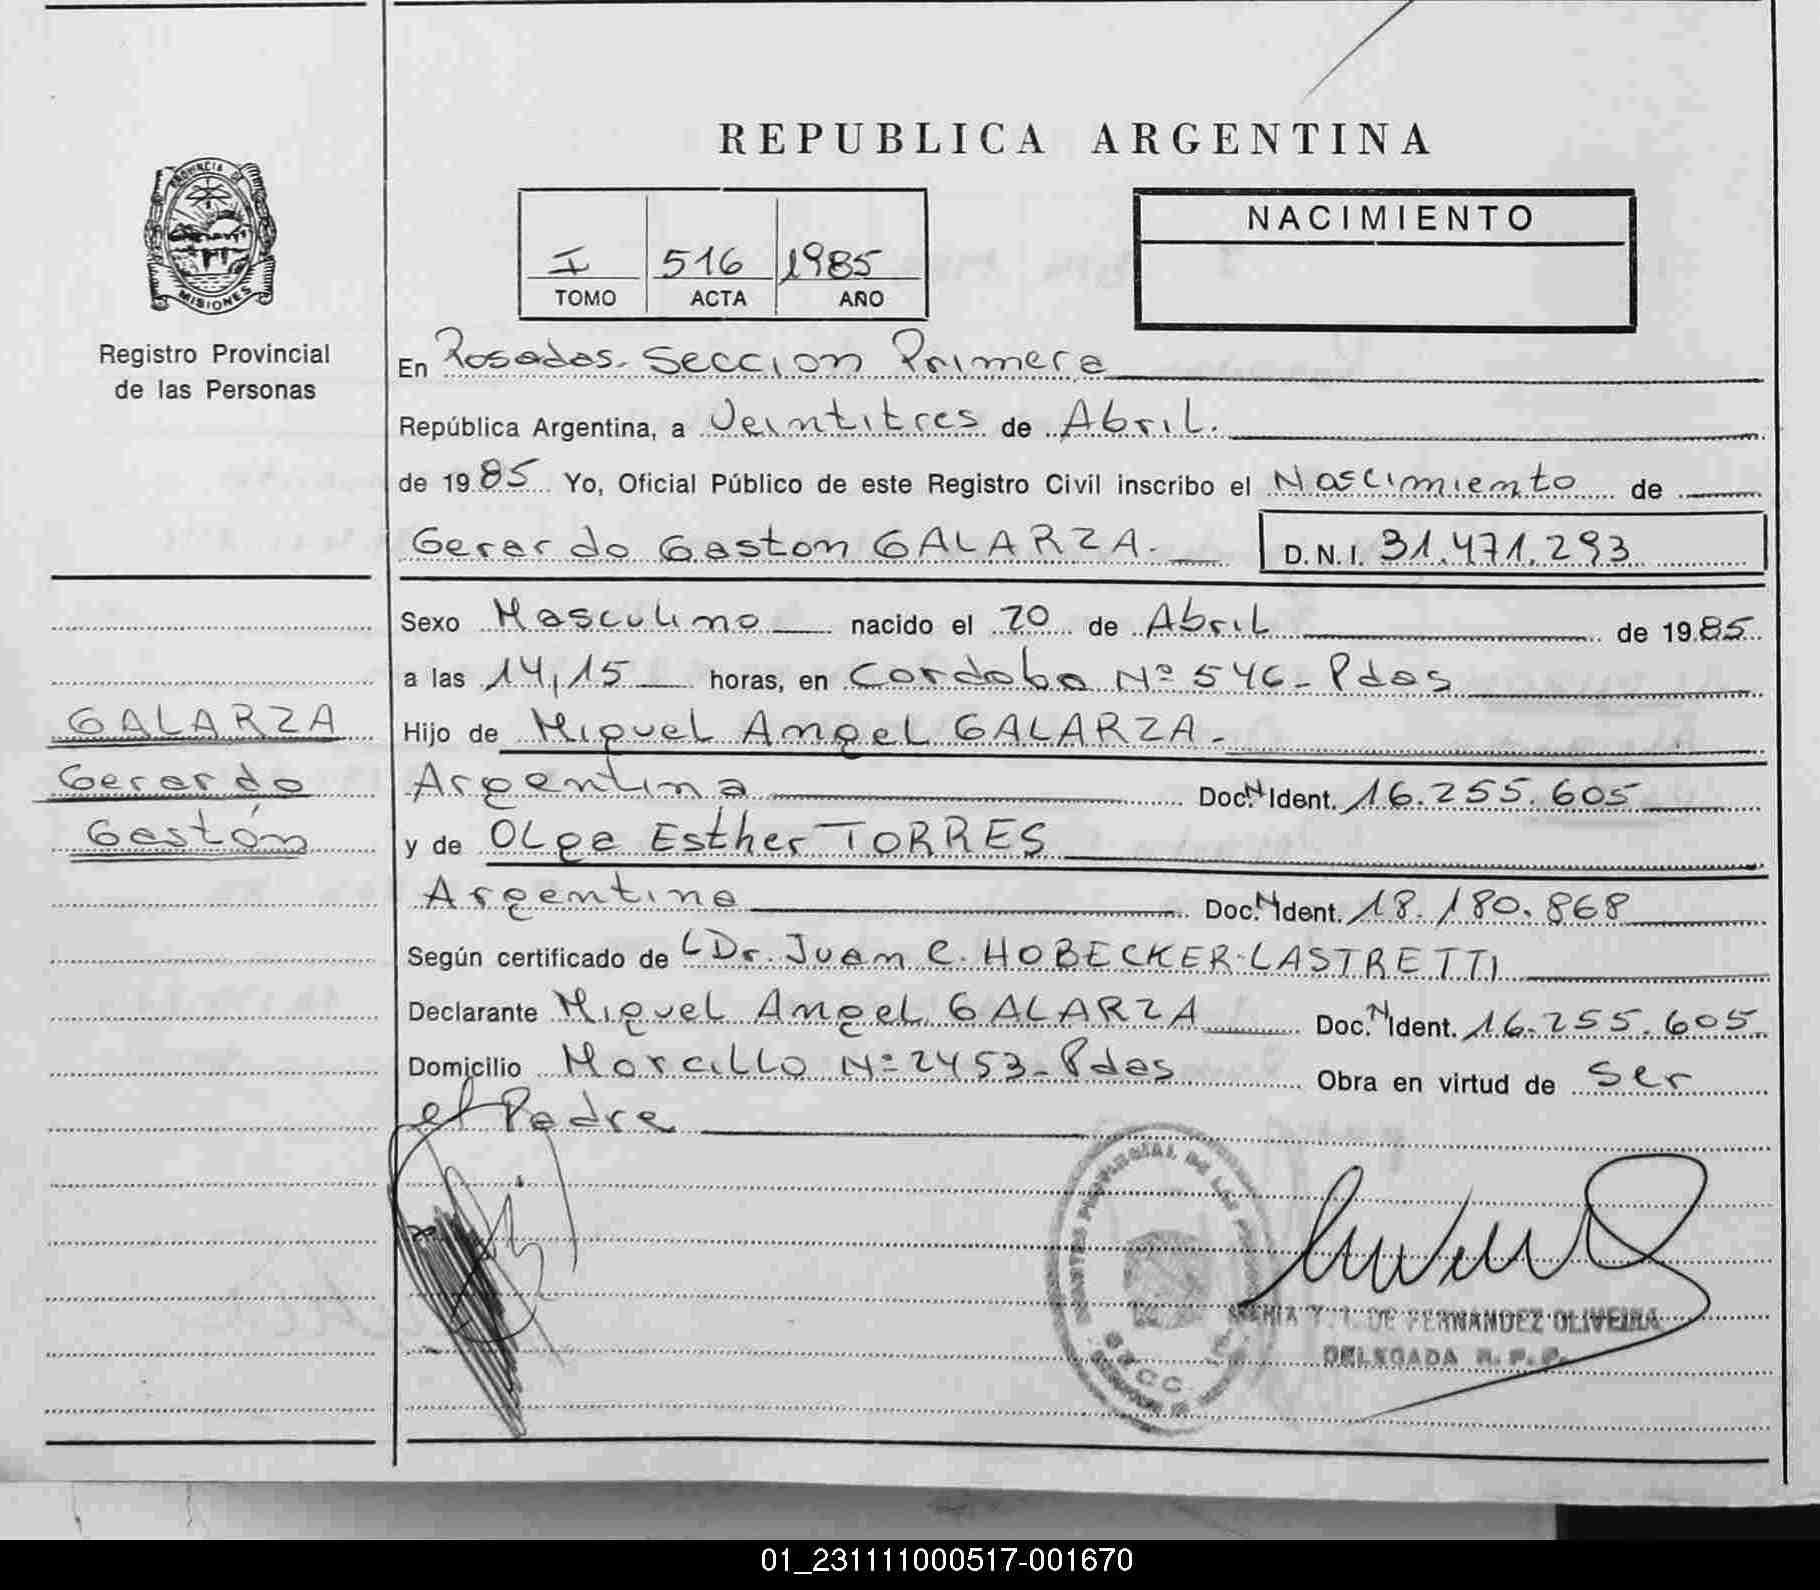 REPUBLICA ARGENTINA
PROVINCIA DE
MISIONES
Registro Provincial
de las Personas
I 516 1985
TOMO ACTA AÑO
NACIMIENTO
En Posadas- Seccion Primera
República Argentina, a Veintitres de Abril.
de 1985 Yo, Oficial Público de este Registro Civil inscribo el Nascimiento de
Gerardo Gaston GALARZA- D.N.I. 31.471.293
Sexo Masculino nacido el 20 de Abril de 1985
a las 14,15 horas, en Cordoba Nº 546- Pdas
GALARZA
Gerardo
Gastón
Hijo de Miguel Angel GALARZA-
Argentina Doc. N Ident. 16.255.605
y de Olga Esther TORRES
Argentina Doc. N Ident. 18.180.868
Según certificado de Dr. Juan C. HOBECKER-LASTRETTI
Declarante Miguel Angel GALARZA Doc. N Ident. 16.255.605
Domicilio Morcillo Nº 2453- Pdas Obra en virtud de Ser
el Padre
PROVINCIAL DE LAS
SECC.
DE FERNANDEZ OLIVEIRA
DELEGADA R.P.P.
01_231111000517-001670